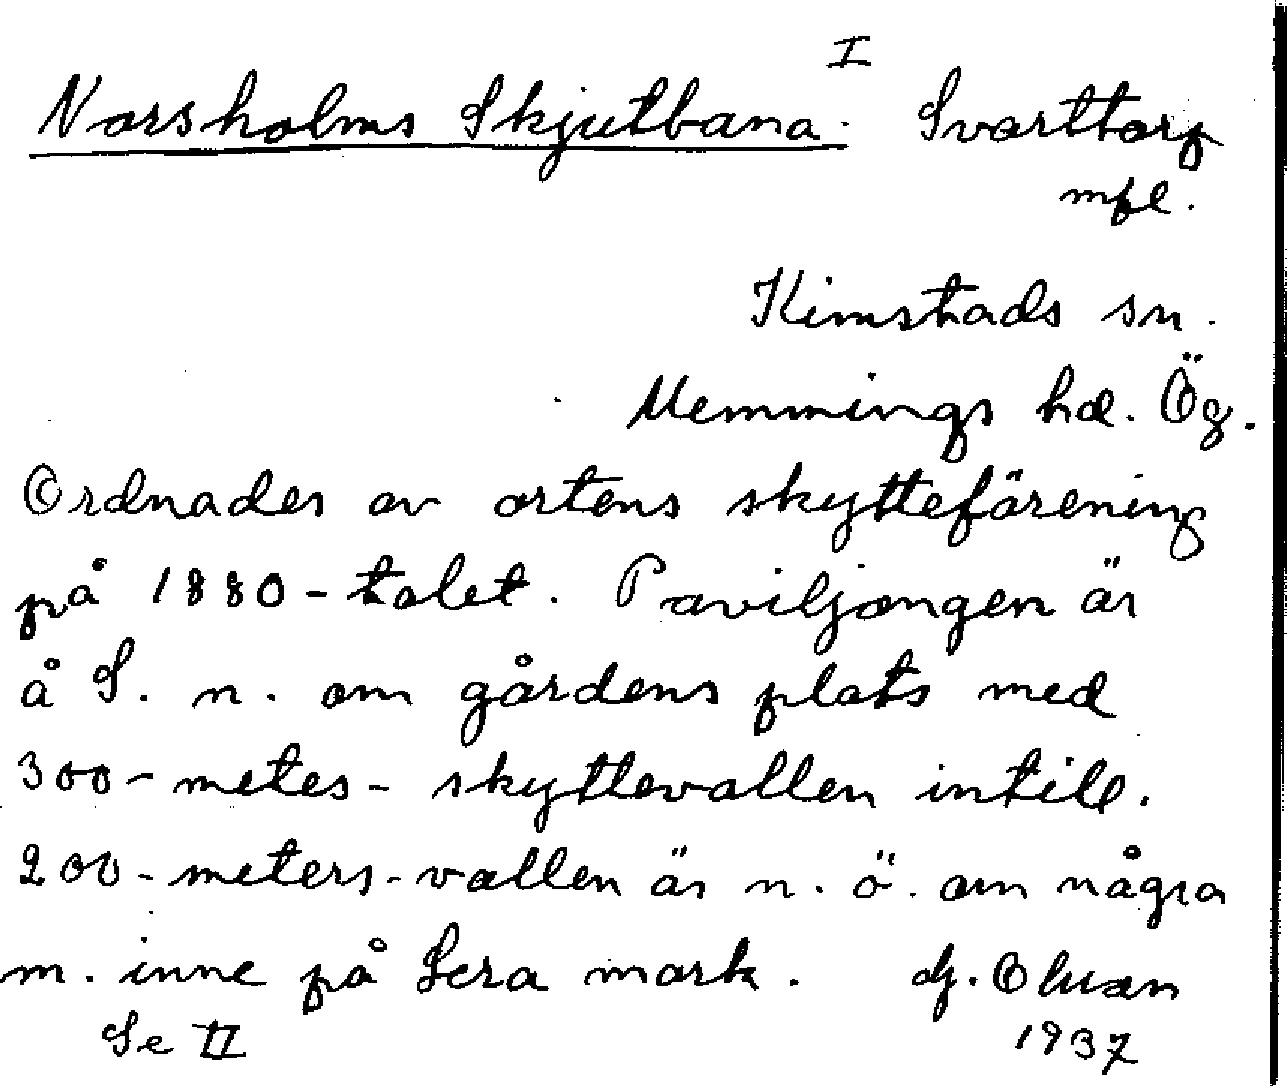 I
Norsholms Skjutbana. Svarttorp
mfl.
Kimstads sn.
Memmings hd. Ög.
Ordnades av ortens skytteförening
på 1880-talet. Paviljongen är
å S. n. om gårdens plats med
300-metes-skyttevallen intill.
200-meters-vallen är n. ö. om några
m. inne på Lera mark.
Se II 1937